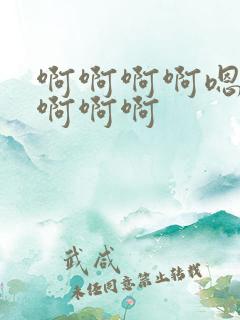 啊啊啊啊嗯
啊啊啊
武咸
未经同意禁止转载